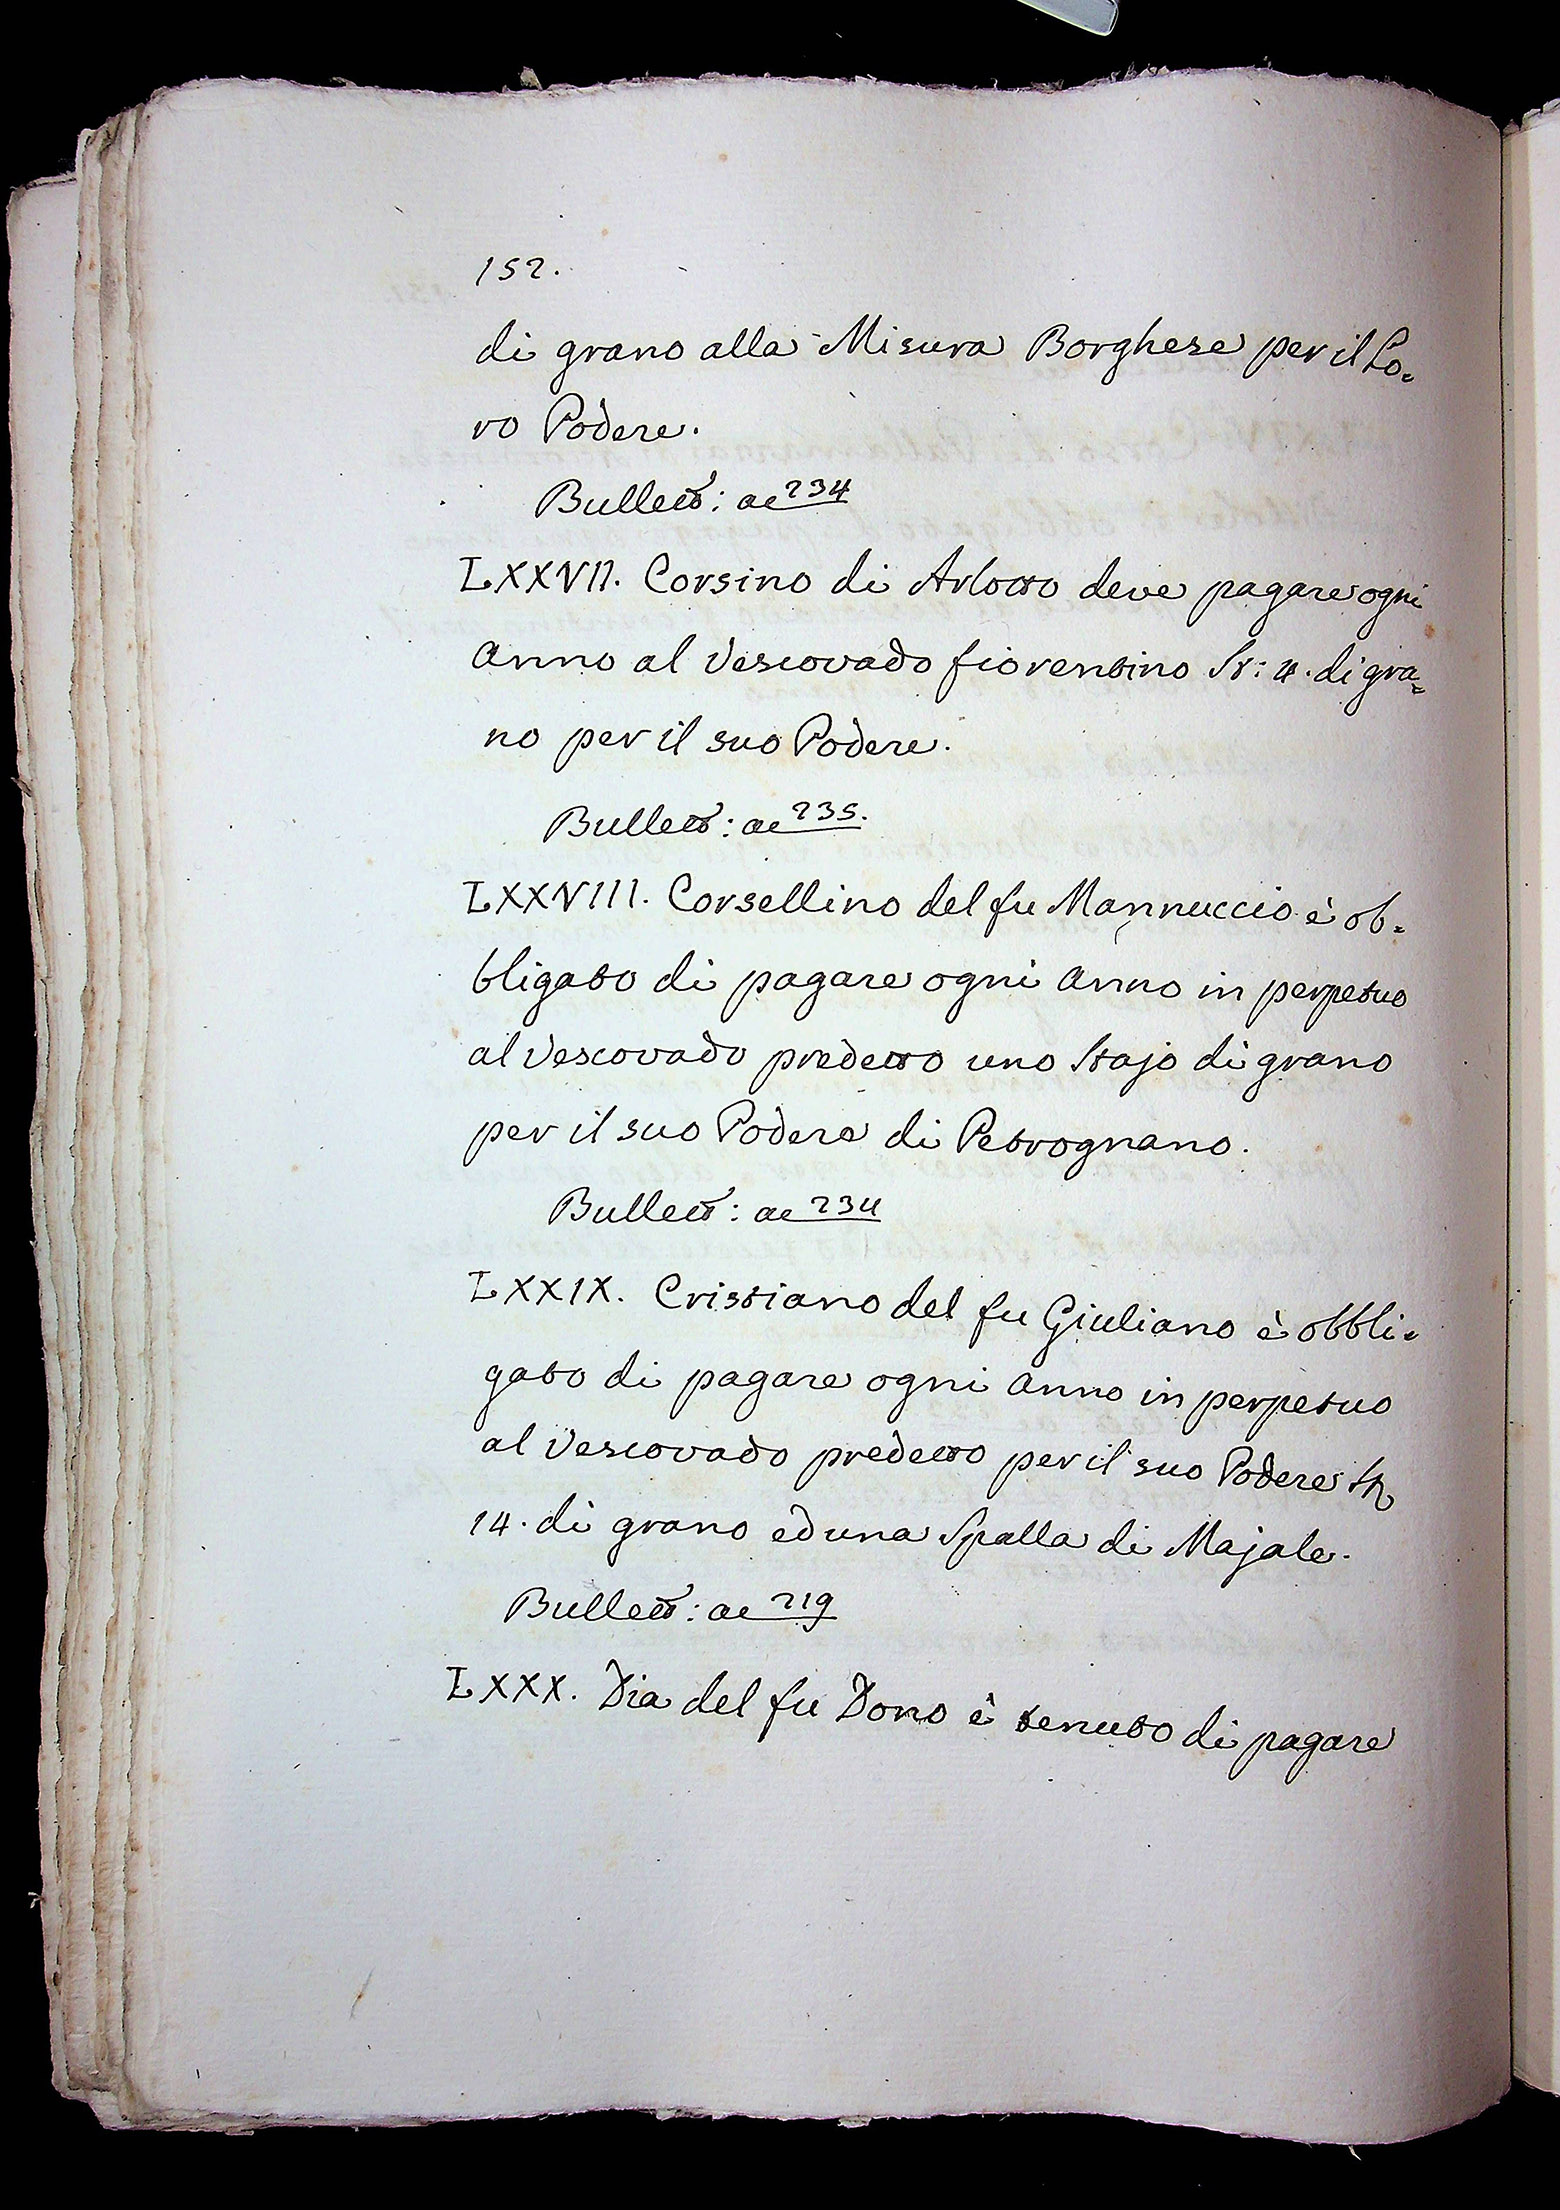 152.
di grano alla Misura Borghese per il Lo=
ro Podere.
Bullett: ac 234
LXXVII. Corsino di Arlotto deve pagare ogni
Anno al Vescovado fiorentino St: 4. di gra=
no per il suo Podere.
Bullett: ac 235.
LXXVIII. Corsellino del fu Mannuccio è ob=
bligato di pagare ogni Anno in perpetuo
al Vescovado predetto uno Stajo di grano
per il suo Podere di Petrognano.
Bullett: ac 234
LXXIX. Cristiano del fu Giuliano è obbli=
gato di pagare ogni Anno in perpetuo
al Vescovado predetto per il suo Podere St
14. di grano ed una Spalla di Majale.
Bullett: ac 219
LXXX. Dia del fu Dono è tenuto di pagare